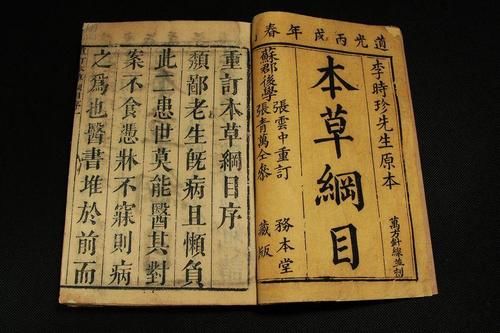 道光丙戌年春
李時珍先生原本
本草綱目
萬方針線並刻
張雲中重訂
蘇郡後學張青萬仝參
務本堂
藏版
重訂本草綱目序
頽鄙老生旣病且懶負
此二患世莫能醫其對
案不食憑牀不寐則病
之爲也醫書堆於前而